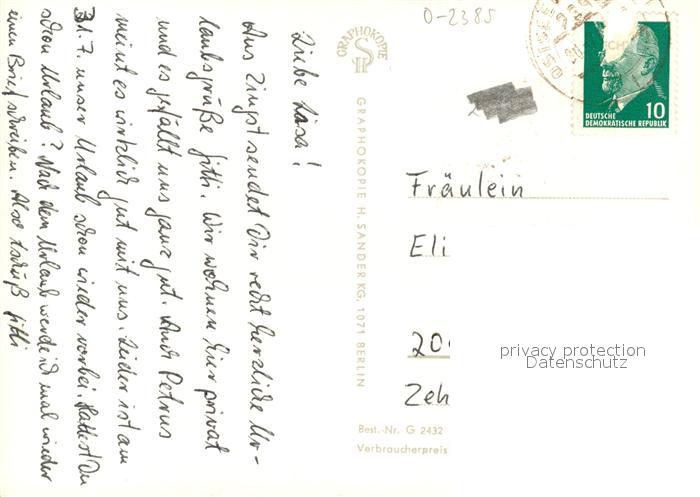 Liebe Lisa!
Aus Zingst sendet Dir recht herzliche Ur-
laubsgrüße Gitti. Wir wohnen hier privat
und es gefällt uns ganz gut. Auch Petrus
meint es wirklich gut mit uns. Leider ist am
31.7. unser Urlaub schon wieder vorbei. Hattest Du
schon Urlaub? Nach dem Urlaub werde ich mal wieder
einen Brief schreiben. Also tschüß Gitti
GRAPHOKOPIE
GRAPHOKOPIE H. SANDER KG, 1071 BERLIN
0-2385
OSTSEE
10
DEUTSCHE
DEMOKRATISCHE REPUBLIK
Fräulein
Eli
20
Zeh
privacy protection
Datenschutz
Best.-Nr. G 2432
Verbraucherpreis